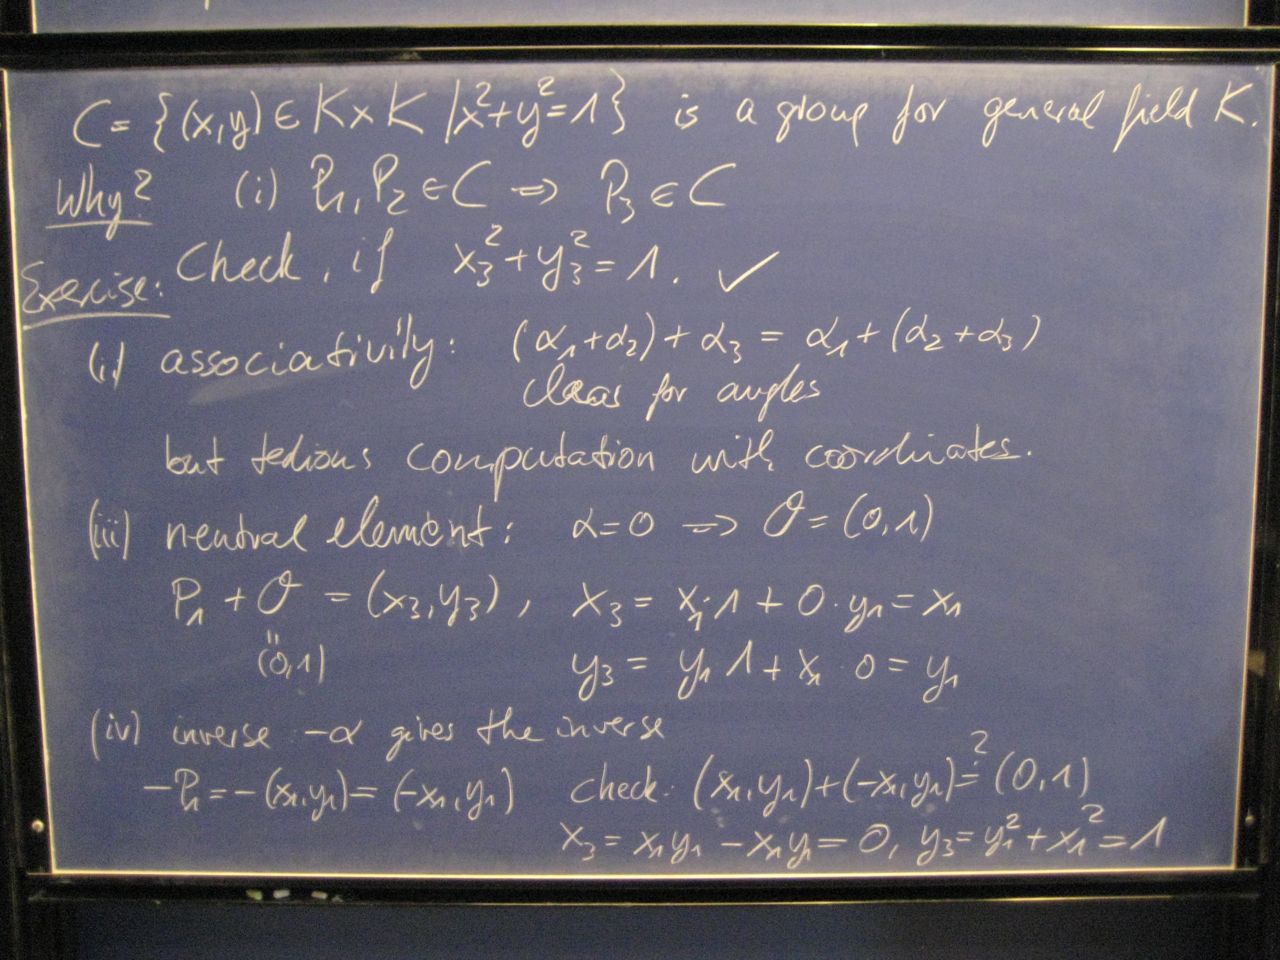 C = {(x,y) ∈ K×K | x²+y²=1} is a group for general field K.
Why? (i) P₁, P₂ ∈ C ⇒ P₃ ∈ C
Exercise: Check, if x₃² + y₃² = 1. ✓
(ii) associativity: (α₁+α₂) + α₃ = α₁ + (α₂+α₃)
clear for angles
but tedious computation with coordinates.
(iii) neutral element: α=0 ⇒ O = (0,1)
P₁ + O = (x₃,y₃), x₃ = x₁·1 + 0·y₁ = x₁
"
(0,1) y₃ = y₁ 1 + x₁ · 0 = y₁
(iv) inverse -α gives the inverse
-P₁ = -(x₁,y₁) = (-x₁,y₁) check: (x₁,y₁)+(-x₁,y₁) =? (0,1)
x₃ = x₁y₁ - x₁y₁ = 0, y₃ = y₁² + x₁² = 1